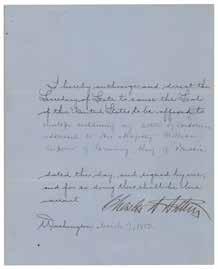 I hereby authorize and direct the
Secretary of State to cause the Seal
of the United States to be affixed to
envelope enclosing my letter of
addressed to His Majesty William
Emperor of Germany King of Prussia
dated this day, and signed by me,
and for so doing this shall be his
warrant.
Chester A Arthur
Washington, March 7, 188